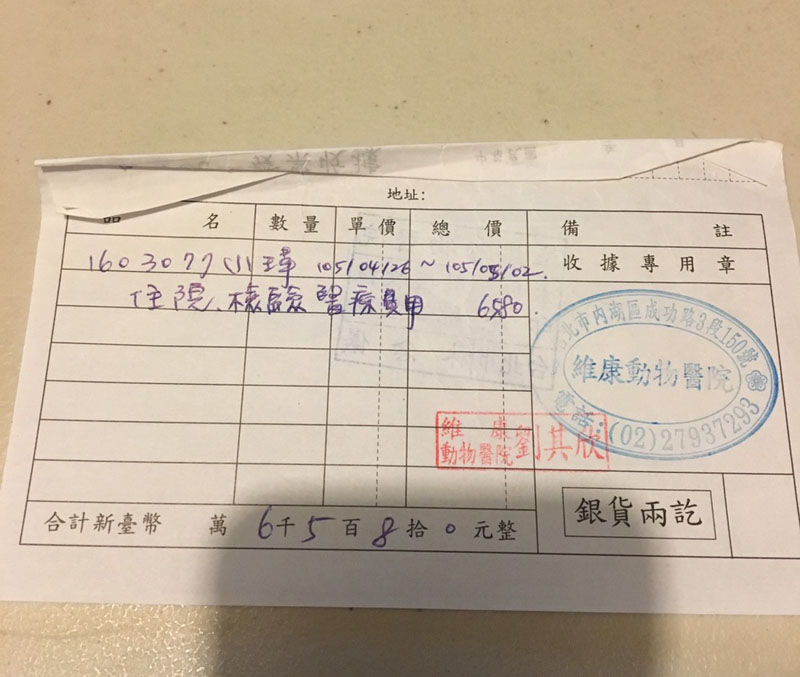 地址：
品名 數量 單價 總價 備註
1603077小瑋 105/04/26～105/05/02.
收據專用章
住院、檢驗醫療費用 6580.
台北市內湖區成功路3段150號
維康動物醫院
電話:(02)27937293
維康
動物醫院
劉其欣
合計新臺幣 萬6千5百8拾0元整
銀貨兩訖